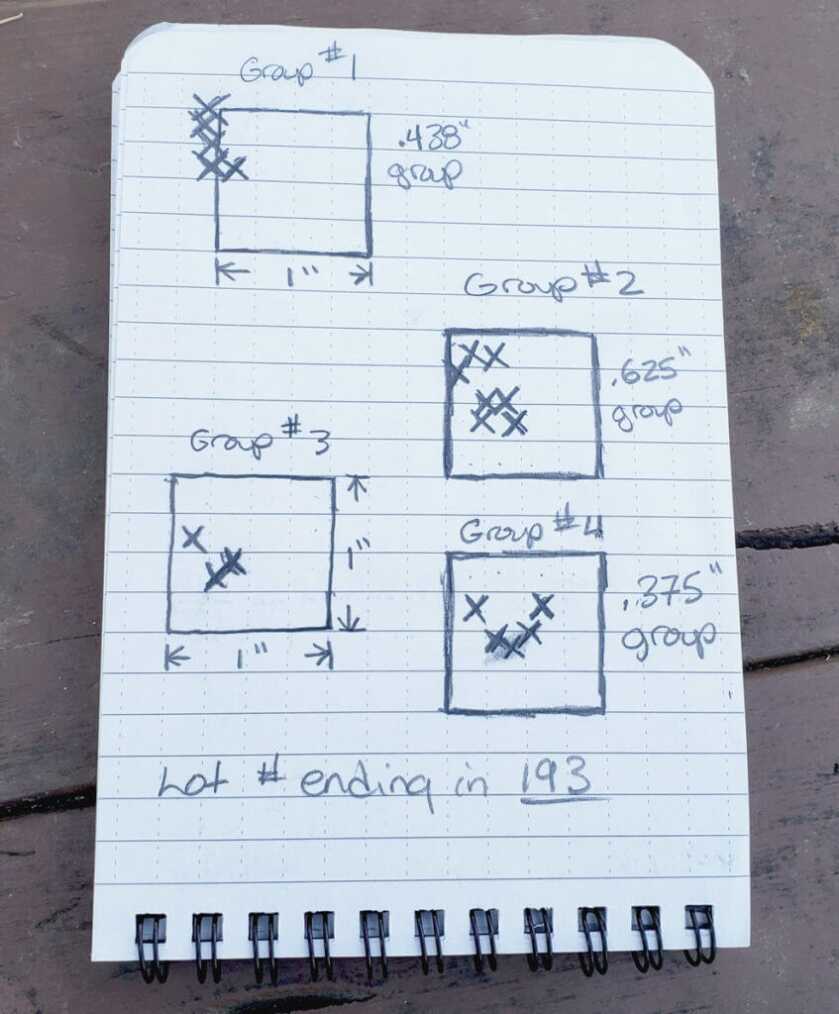 Group #1
.438"
group
1"
Group #2
.625"
group
Group #3
1"
1"
Group #4
.375"
group
Lot # ending in 193